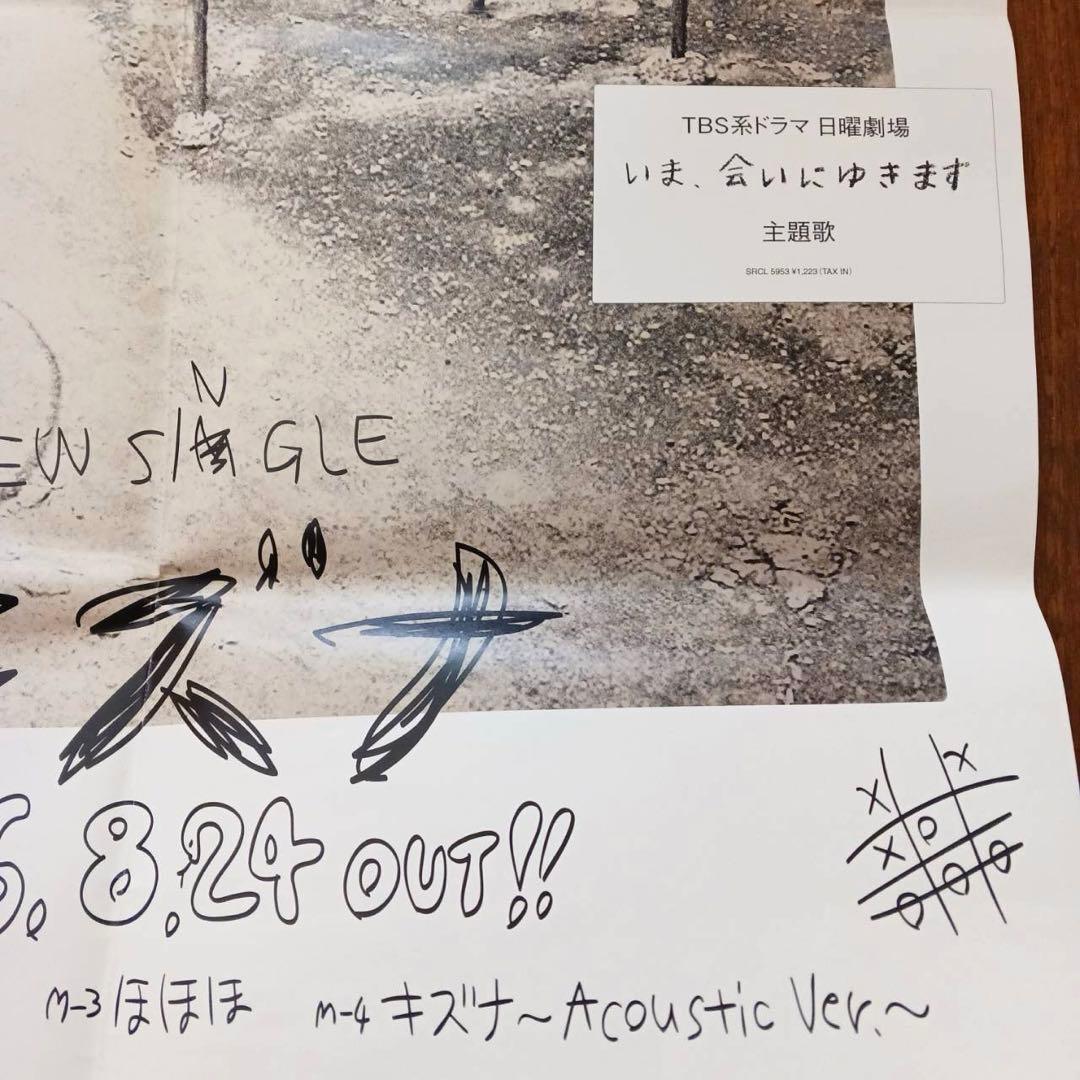 TBS系ドラマ 日曜劇場
いま、会いにゆきます
主題歌
SRCL 5953 ¥1,223(TAX IN)
EW SINGLE
ズナ
5. 8.24 OUT!!
X X
X O
O O O
M-3 ほほほ M-4 キズナ〜Acoustic Ver.〜